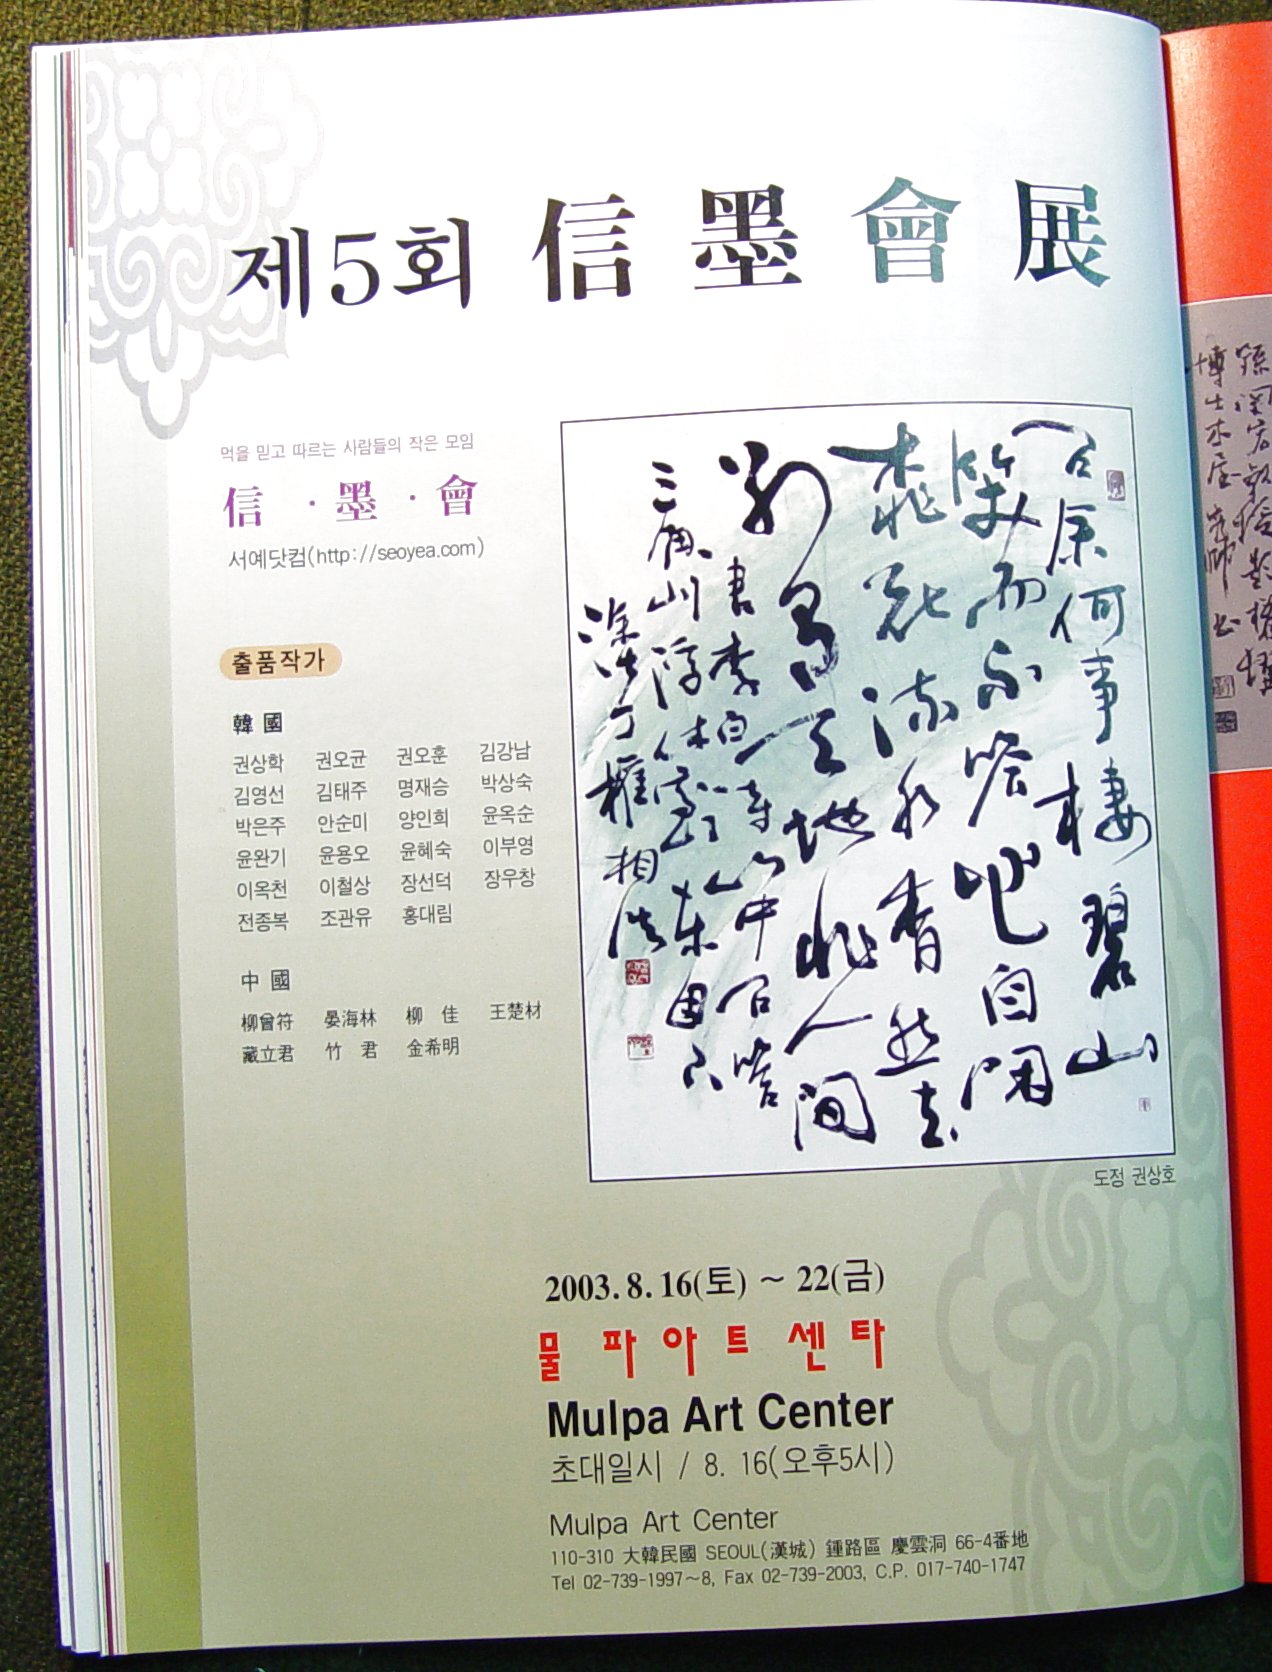 제5회 信墨會展
먹을 믿고 따르는 사람들의 작은 모임
信·墨·會
서예닷컴(http://seoyea.com)
출품작가
韓國
권상학 권오균 권오훈 김강남
김영선 김태주 명재승 박상숙
박은주 안순미 양인희 윤옥순
윤완기 윤용오 윤혜숙 이부영
이옥천 이철상 장선덕 장우창
전종복 조관유 홍대림
中國
柳曾符 晏海林 柳 佳 王楚材
藏立君 竹 君 金希明
問余何事棲碧山
笑而不答心自閑
桃花流水杳然去
別有天地非人間
書李白詩山中問答
三角山
塗丁權相浩
도정 권상호
2003. 8. 16(토) ~ 22(금)
물파아트센타
Mulpa Art Center
초대일시 / 8. 16(오후5시)
Mulpa Art Center
110-310 大韓民國 SEOUL(漢城) 鍾路區 慶雲洞 66-4番地
Tel 02-739-1997~8, Fax 02-739-2003, C.P. 017-740-1747